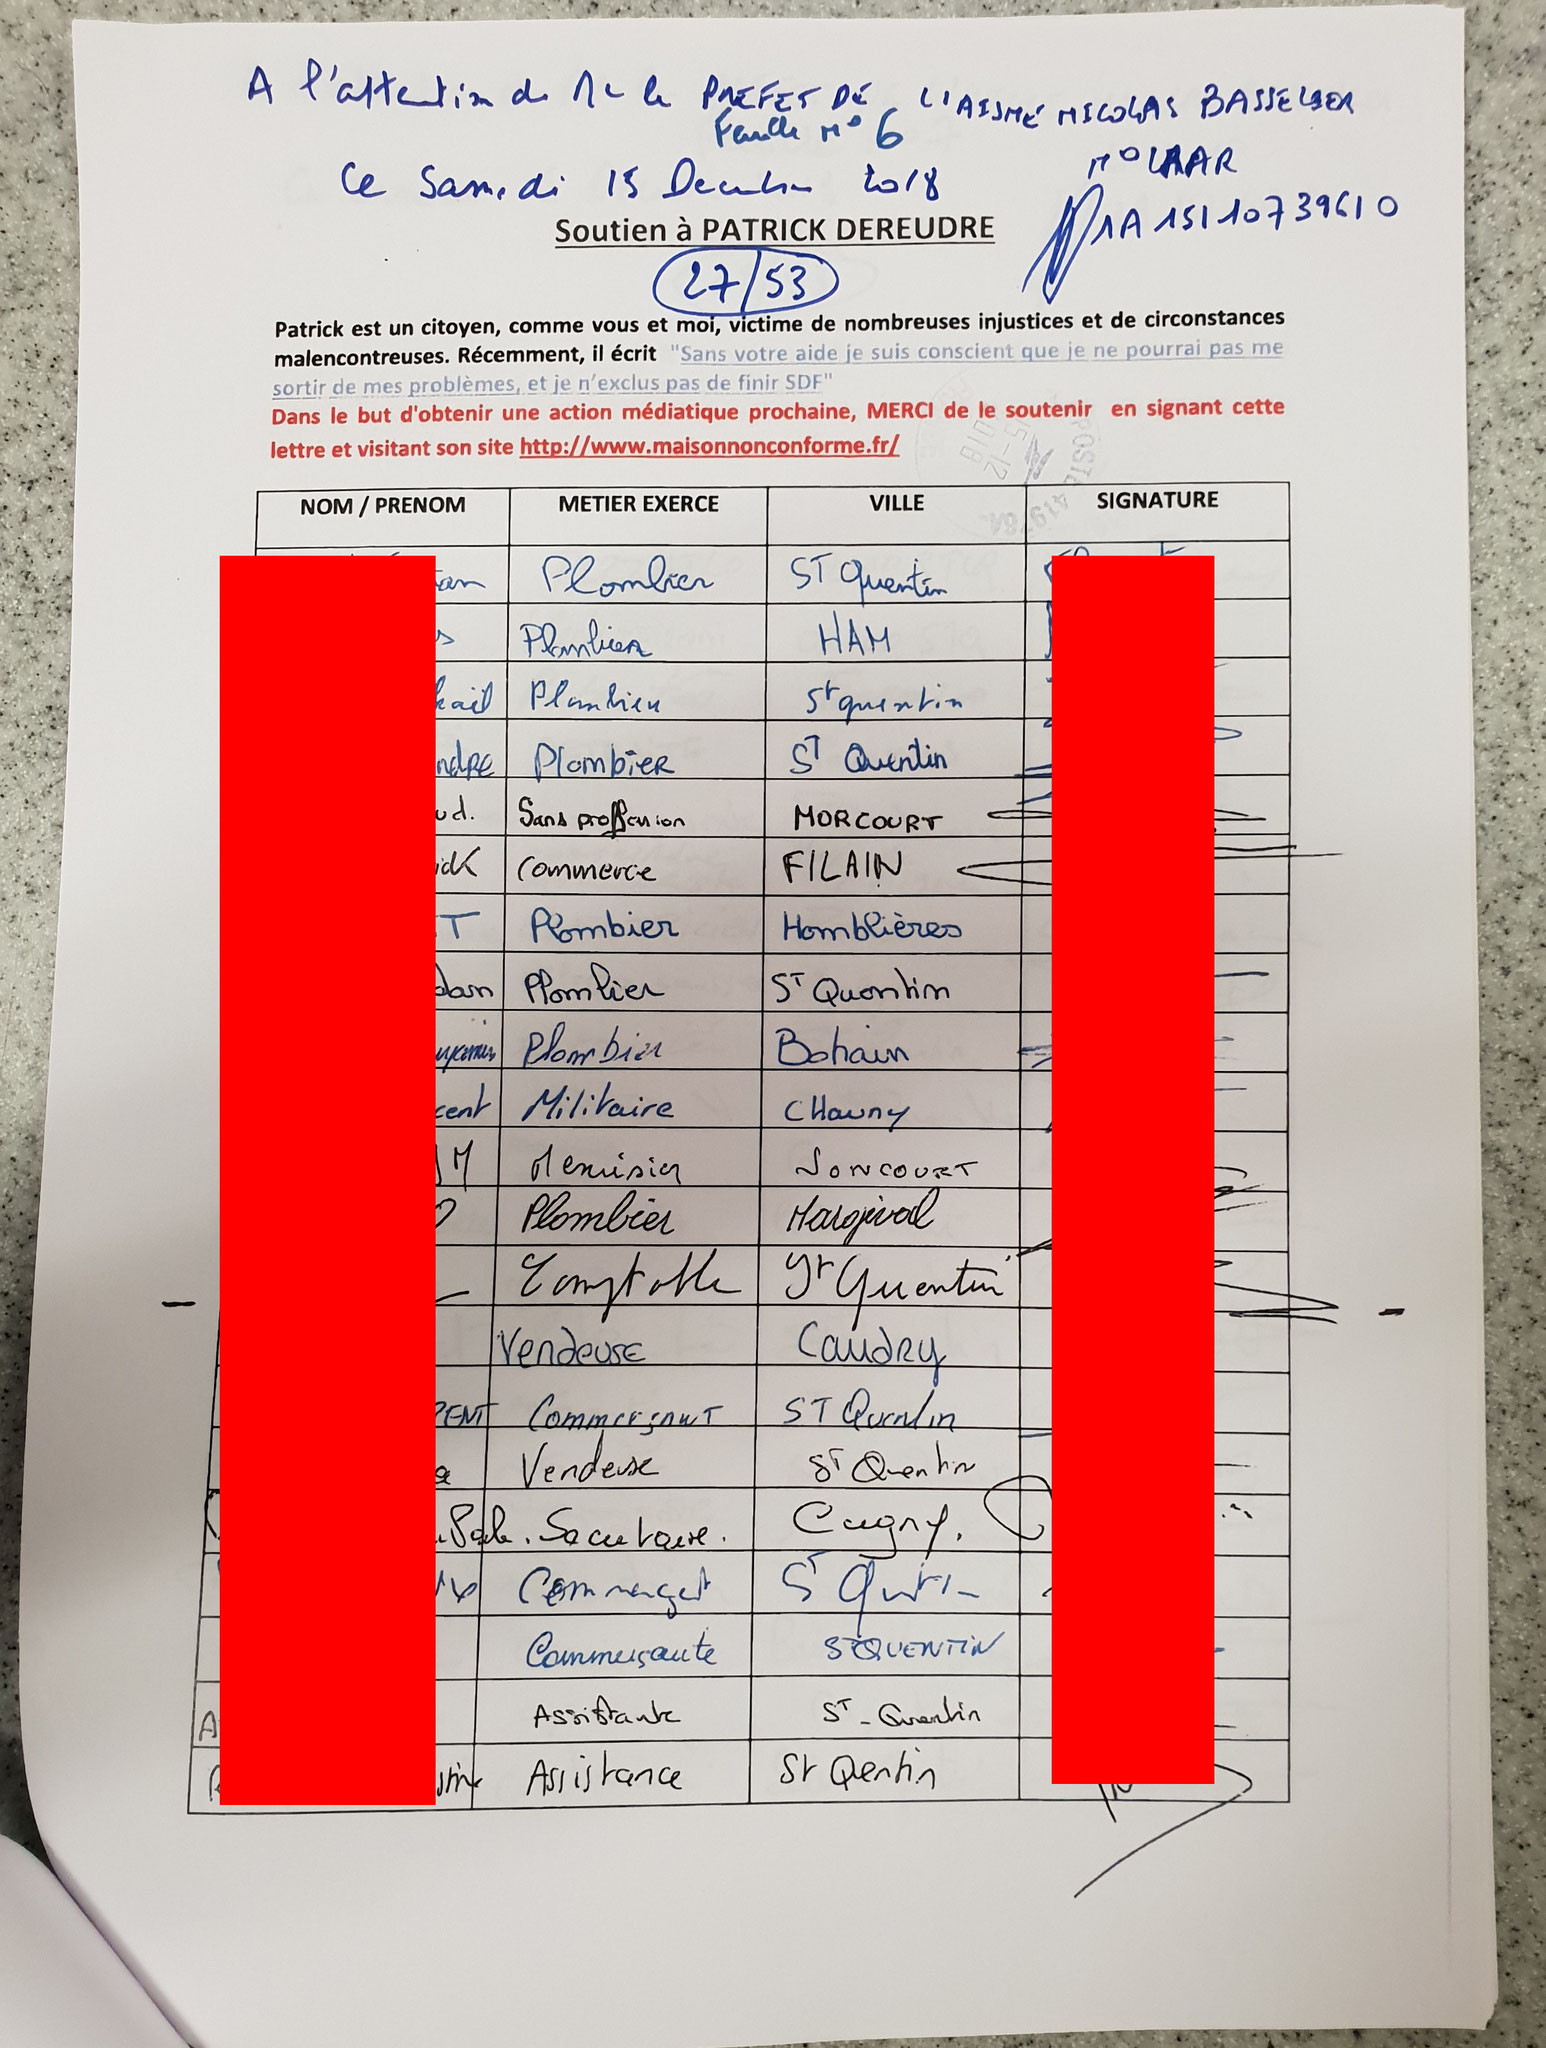 A l'attention de Mr le PREFET DE L'AISNE NICOLAS BASSELIER
Feuille N° 6
N° LRAR
Ce Samedi 15 Decembre 2018
1A 151 107 3961 0
Soutien à PATRICK DEREUDRE
27/53
Patrick est un citoyen, comme vous et moi, victime de nombreuses injustices et de circonstances
malencontreuses. Récemment, il écrit "Sans votre aide je suis conscient que je ne pourrai pas me
sortir de mes problèmes, et je n'exclus pas de finir SDF"
Dans le but d'obtenir une action médiatique prochaine, MERCI de le soutenir en signant cette
lettre et visitant son site http://www.maisonnonconforme.fr/
POSTE 41976A
15-12
2018
NOM / PRENOM METIER EXERCE VILLE SIGNATURE
Plombier ST Quentin
Plombier HAM
Plombier St quentin
ndre Plombier ST Quentin
ud. Sans proffession MORCOURT
ick Commerce FILAIN
T Plombier Homblières
dan Plombier ST Quentin
Plombier Bohain
cent Militaire CHauny
M Menuisier JONCOURT
Plombier Margival
Comptable St Quentin
Vendeuse Caudry
RENT Commerçant ST Quentin
Vendeuse ST Quentin
Secretaire. Cugny.
Commerçant ST Quentin
Commerçante ST QUENTIN
A Assistante ST-Quentin
R stine Assistance St Qentin